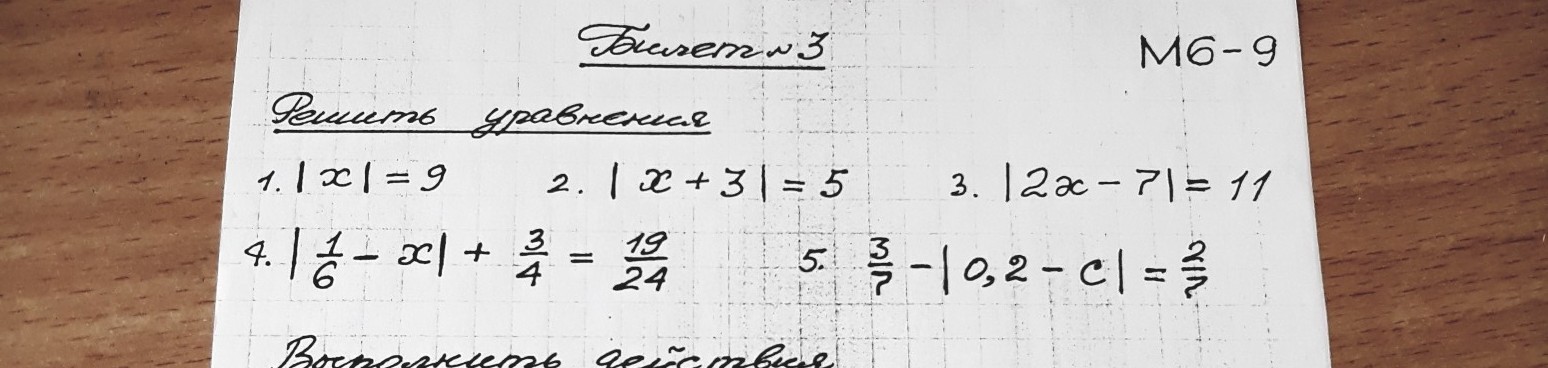 Билет № 3 М6-9
Решить уравнения
1. |x| = 9 2. |x + 3| = 5 3. |2x - 7| = 11
4. |1/6 - x| + 3/4 = 19/24 5. 3/7 - |0,2 - c| = 2/7
Выполнить действия